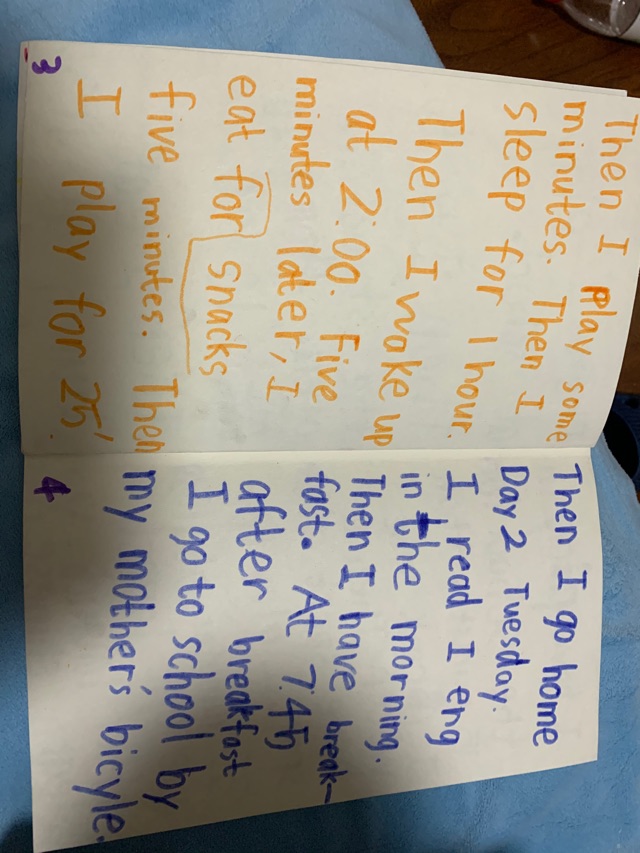 Then I play some
minutes. Then I
sleep for 1 hour.
Then I wake up
at 2:00. Five
minutes later, I
eat for snacks
five minutes. Then
I play for 25'.
3
Then I go home
Day 2 Tuesday.
I read I eng
in the morning.
Then I have break-
fast. At 7.45
after breakfast
I go to school by
my mother's bicyle.
4